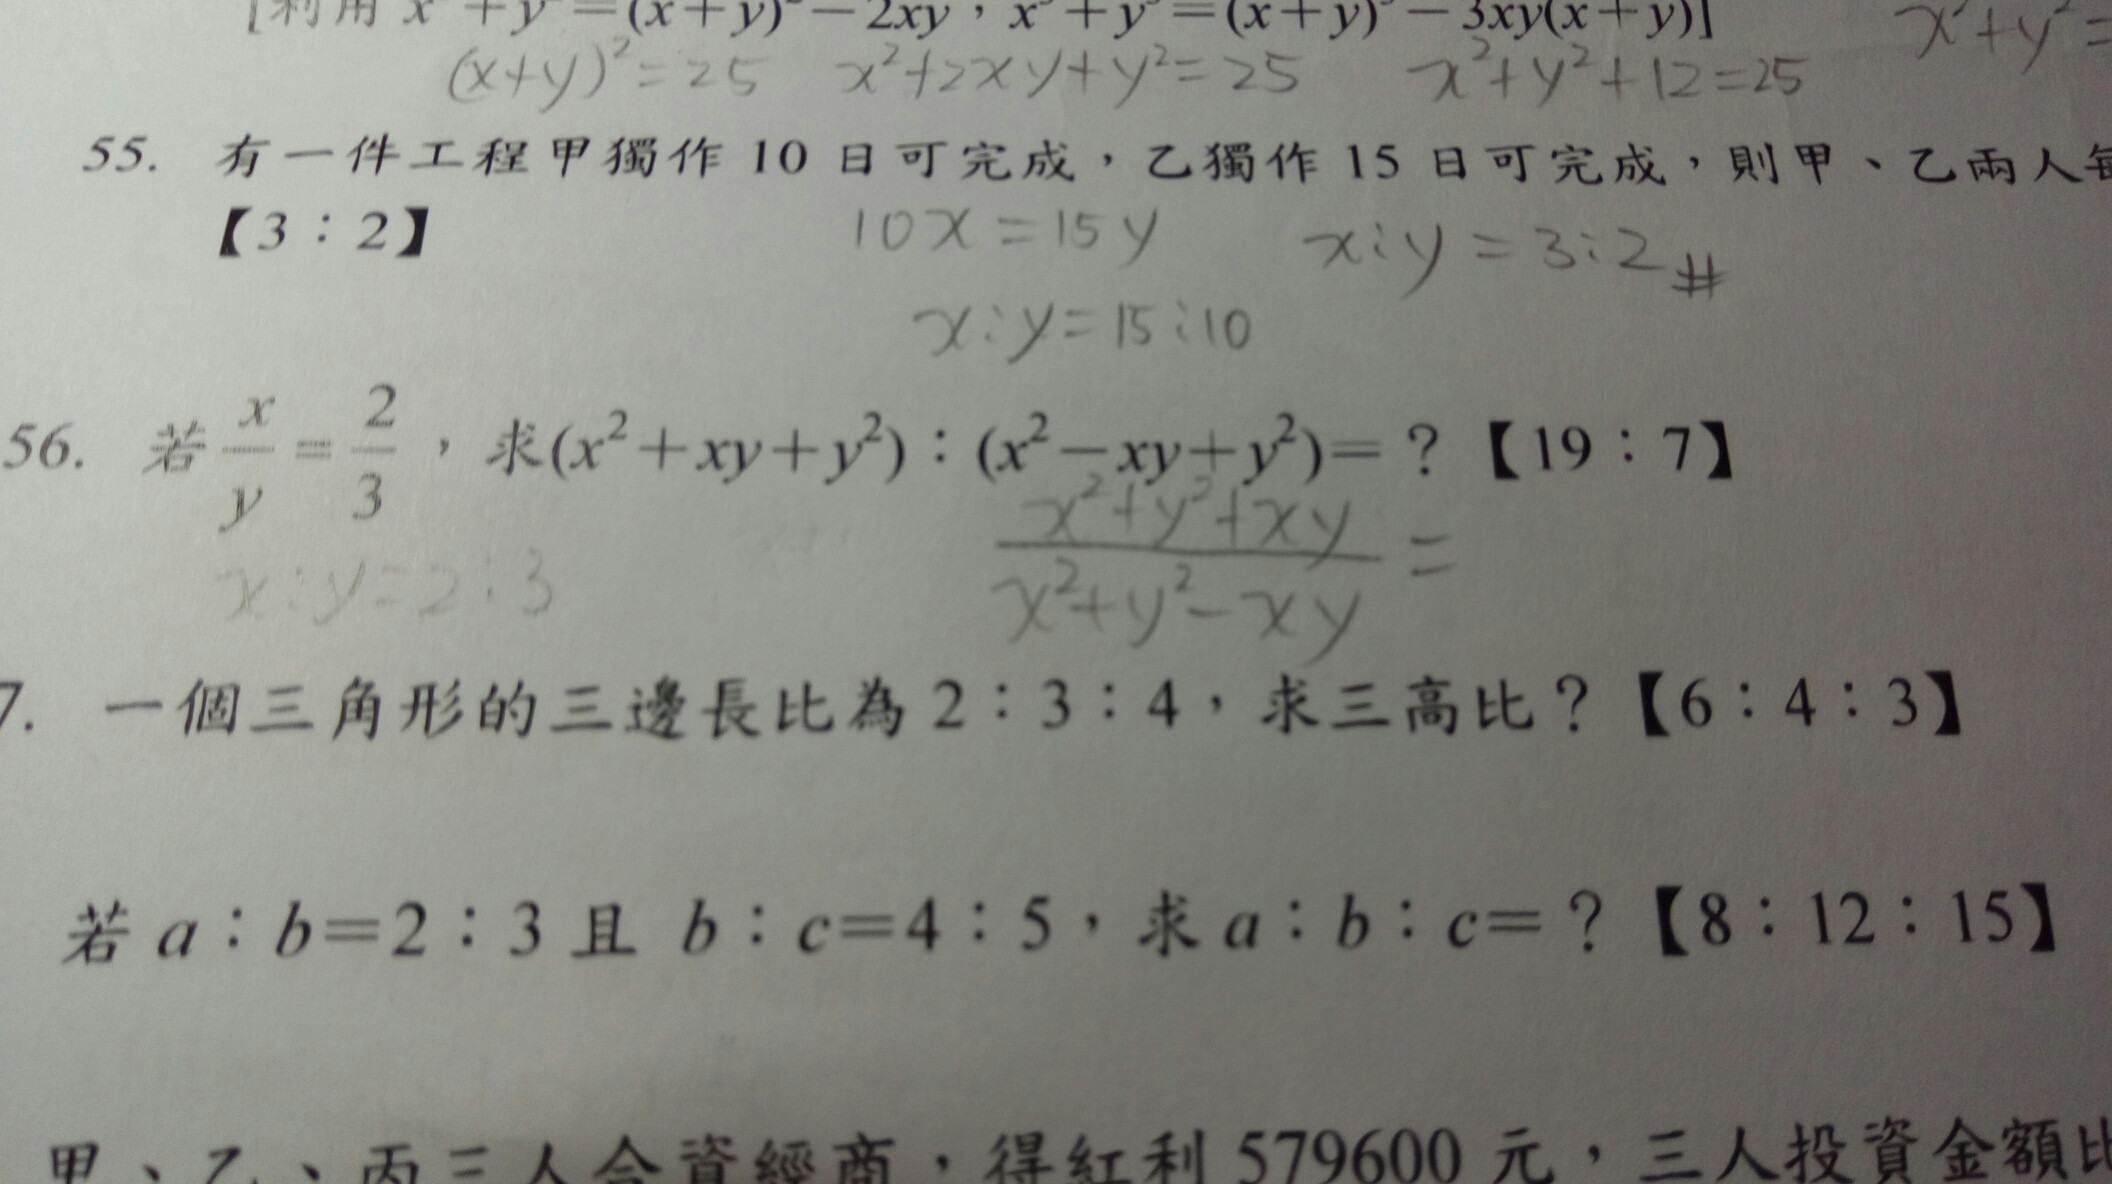 [利用 x²+y²=(x+y)²-2xy，x³+y³=(x+y)³-3xy(x+y)]
(x+y)²=25 x²+2xy+y²=25 x²+y²+12=25 x²+y²=
55. 有一件工程甲獨作 10 日可完成，乙獨作 15 日可完成，則甲、乙兩人每
【3：2】 10x=15y x:y=3:2#
x:y=15:10
56. 若 x/y = 2/3 ，求(x²+xy+y²)：(x²-xy+y²)=？【19：7】
x:y=2:3 (x²+y²+xy)/(x²+y²-xy) =
7. 一個三角形的三邊長比為 2：3：4，求三高比？【6：4：3】
若 a：b=2：3 且 b：c=4：5，求 a：b：c=？【8：12：15】
甲、乙、丙三人合資經商，得紅利 579600 元，三人投資金額比